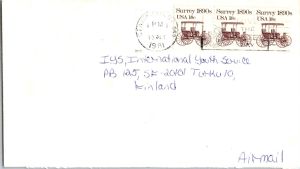 Surrey 1890s Surrey 1890s Surrey 1890s
USA 18c USA 18c USA 18c
PM
1981
IYS, International Youth Service
PB 125, SF-20101 TURKU 10,
Finland
Airmail